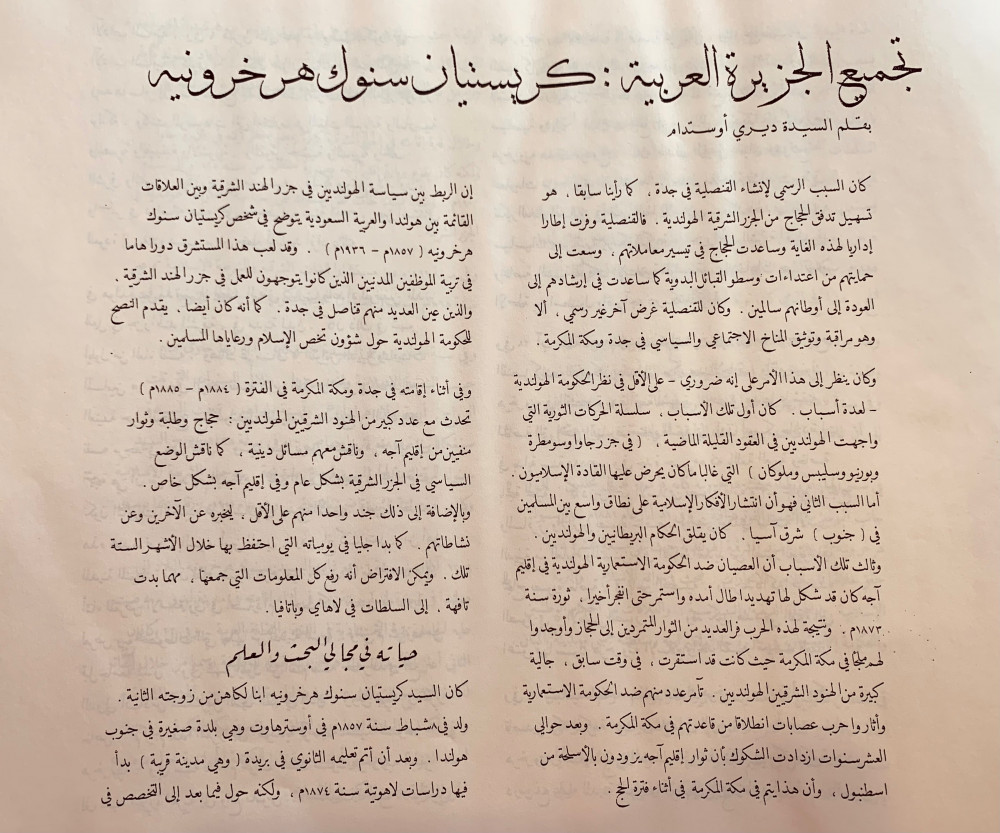 تجميع الجزيرة العربية : كريستيان سنوك هرخرونيه
بقلم السيدة ديري أوستدام
كان السبب الرسمي لإنشاء القنصلية في جدة ، كما رأينا سابقا ، هو
تسهيل تدفق الحجاج من الجزر الشرقية الهولندية . فالقنصلية وفرت إطارا
إداريا لهذه الغاية وساعدت الحجاج في تيسير معاملاتهم ، وسعت إلى
حمايتهم من اعتداءات وسطو القبائل البدوية كما ساعدت في إرشادهم إلى
العودة إلى أوطانهم سالمين . وكان للقنصلية غرض آخر غير رسمي ، ألا
وهو مراقبة وتوثيق المناخ الاجتماعي والسياسي في جدة ومكة المكرمة .
وكان ينظر إلى هذا الأمر على إنه ضروري – على الأقل في نظر الحكومة الهولندية
– لعدة أسباب . كان أول تلك الأسباب ، سلسلة الحركات الثورية التي
واجهت الهولنديين في العقود القليلة الماضية ، ( في جزر جاوا وسومطرة
وبورنيو وسليبس وملوكان ) التي غالبا ما كان يحرض عليها القادة الإسلاميون .
أما السبب الثاني فهو أن انتشار الأفكار الإسلامية على نطاق واسع بين المسلمين
في ( جنوب ) شرق آسيا . كان يقلق الحكام البريطانيين والهولنديين .
وثالث تلك الأسباب أن العصيان ضد الحكومة الاستعمارية الهولندية في إقليم
آجه كان قد شكل لها تهديدا طال أمده واستمر حتى انفجر أخيرا ، ثورة سنة
١٨٧٣م . ونتيجة لهذه الحرب فر العديد من الثوار المتمردين إلى الحجاز وأوجدوا
لهم ملجأ في مكة المكرمة حيث كانت قد استقرت ، في وقت سابق ، جالية
كبيرة من الهنود الشرقيين الهولنديين . تآمر عدد منهم ضد الحكومة الاستعمارية
وأثاروا حرب عصابات انطلاقا من قاعدتهم في مكة المكرمة . وبعد حوالي
العشر سنوات ازدادت الشكوك بأن ثوار إقليم آجه يزودون بالأسلحة من
اسطنبول ، وأن هذا يتم في مكة المكرمة في أثناء فترة الحج .
إن الربط بين سياسة الهولنديين في جزر الهند الشرقية وبين العلاقات
القائمة بين هولندا والعربية السعودية يتوضح في شخص كريستيان سنوك
هرخرونيه ( ١٨٥٧م – ١٩٣٦م ) . وقد لعب هذا المستشرق دورا هاما
في تربية الموظفين المدنيين الذين كانوا يتوجهون للعمل في جزر الهند الشرقية .
والذين عين العديد منهم قناصل في جدة . كما أنه كان أيضا ، يقدم النصح
للحكومة الهولندية حول شؤون تخص الإسلام ورعاياها المسلمين .
وفي أثناء إقامته في جدة ومكة المكرمة في الفترة ( ١٨٨٤م – ١٨٨٥م )
تحدث مع عدد كبير من الهنود الشرقيين الهولنديين : حجاج وطلبة وثوار
منفيين من إقليم آجه ، وناقش معهم مسائل دينية ، كما ناقش الوضع
السياسي في الجزر الشرقية بشكل عام وفي إقليم آجه بشكل خاص .
وبالإضافة إلى ذلك جند واحدا منهم على الأقل ، ليخبره عن الآخرين وعن
نشاطاتهم . كما بدا جليا في يومياته التي احتفظ بها خلال الأشهر الستة
تلك . ويمكن الافتراض أنه رفع كل المعلومات التي جمعها ، مهما بدت
تافهة ، إلى السلطات في لاهاي وباتافيا .
حياته في مجالي البحث والعلم
كان السيد كريستيان سنوك هرخرونيه ابنا لكاهن من زوجته الثانية .
ولد في ٨ شباط سنة ١٨٥٧م في أوسترهاوت وهي بلدة صغيرة في جنوب
هولندا . وبعد أن أتم تعليمه الثانوي في بريدة ( وهي مدينة قريبة ) بدأ
فيها دراسات لاهوتية سنة ١٨٧٤م ، ولكنه حول فيما بعد إلى التخصص في